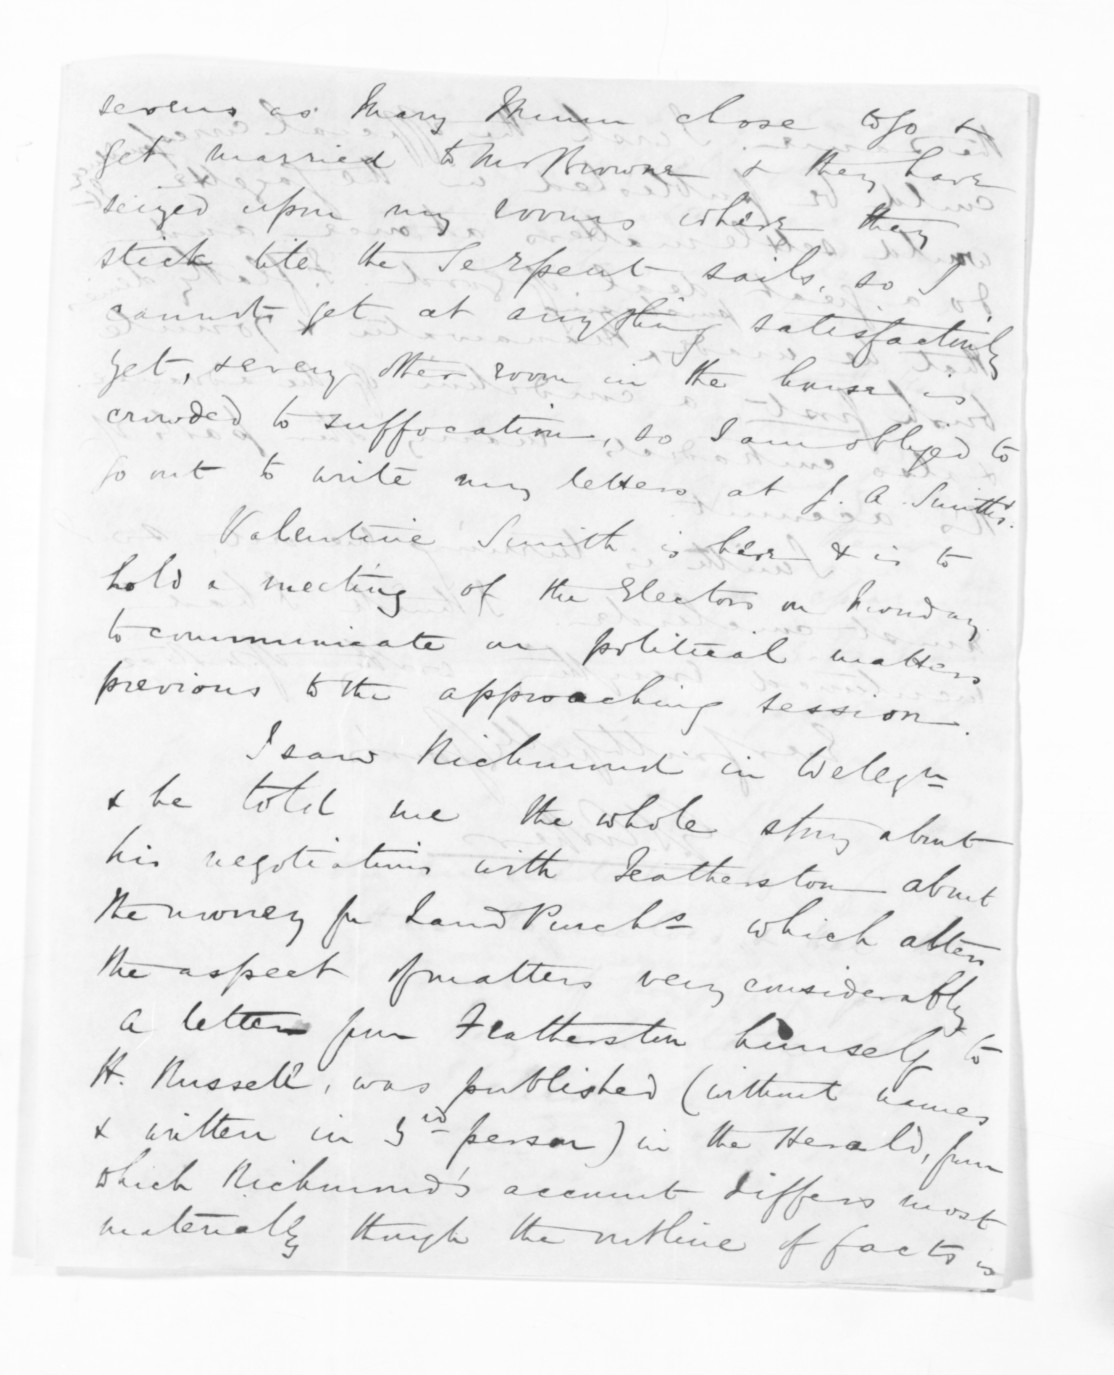 sevens as Mary Munn chose to go &
get married to Mr Browne & they have
seized upon my rooms where they
stick till the Serpent sails, so I
cannot get at anything satisfactorily
yet, & every other room in the house is
crowded to suffocation, so I am obliged to
go out to write my letters at J. A. Smith's.
Valentine Smith is here & is to
hold a meeting of the Electors on Monday
to communicate on political matters
previous to the approaching session.
I saw Richmond in Wellegn
& he told me the whole story about
his negotiations with Featherston about
the money for Land Purchs which alters
the aspect of matters very considerably
A letter from Featherston himself to
H. Russell, was published (without names
& written in 3rd person) in the Herald, from
which Richmond's account differs most
materially though the outline of facts is